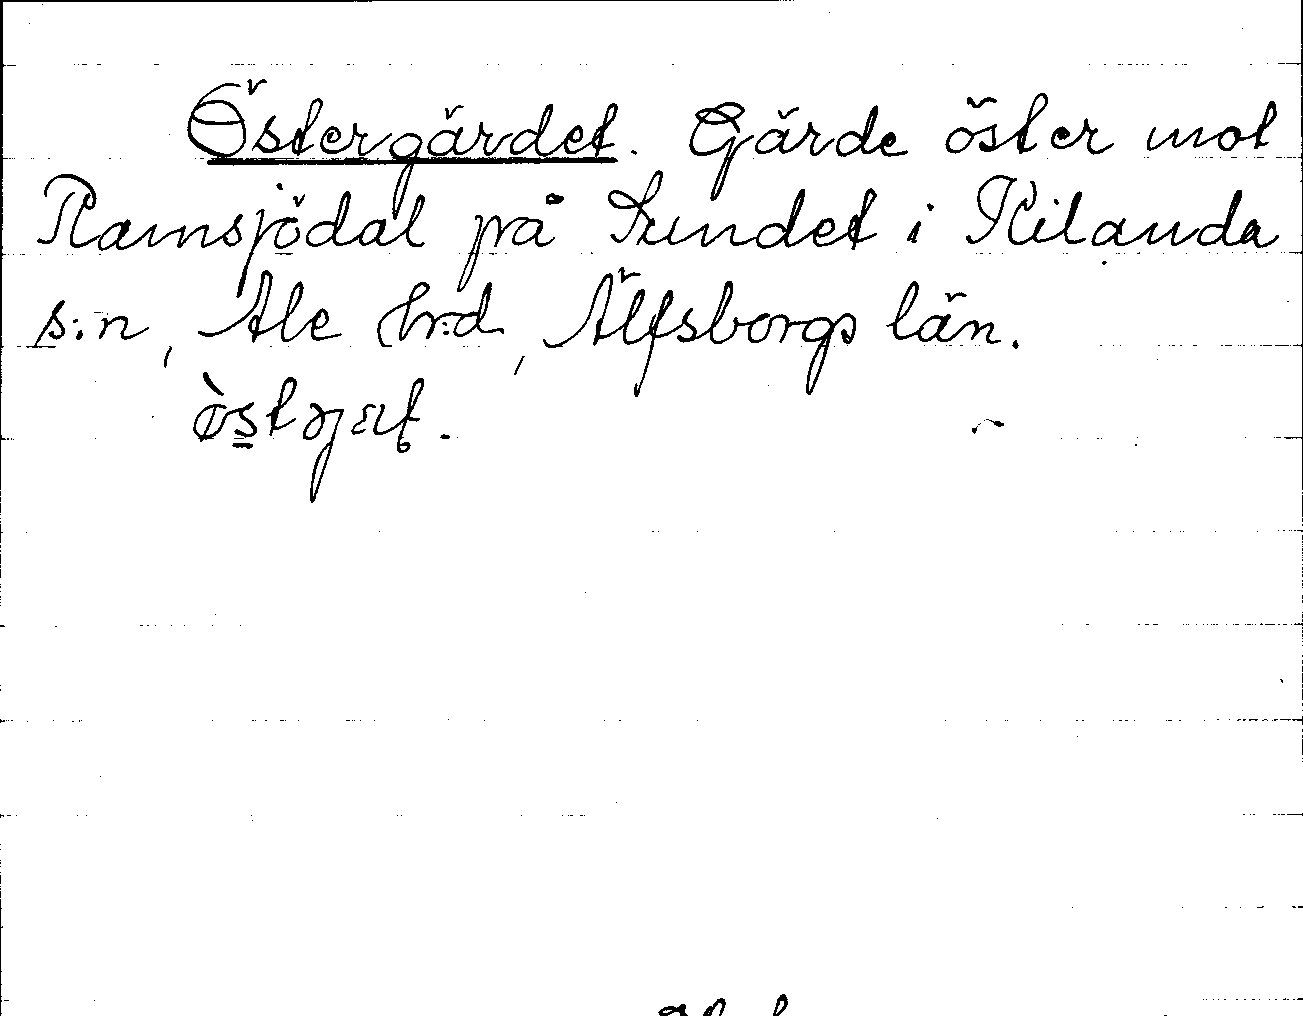 Östergärdet. Gärde öster mot
Ramsjödal på Sundet i Kilanda
s:n, Ale hrd, Älfsborgs län.